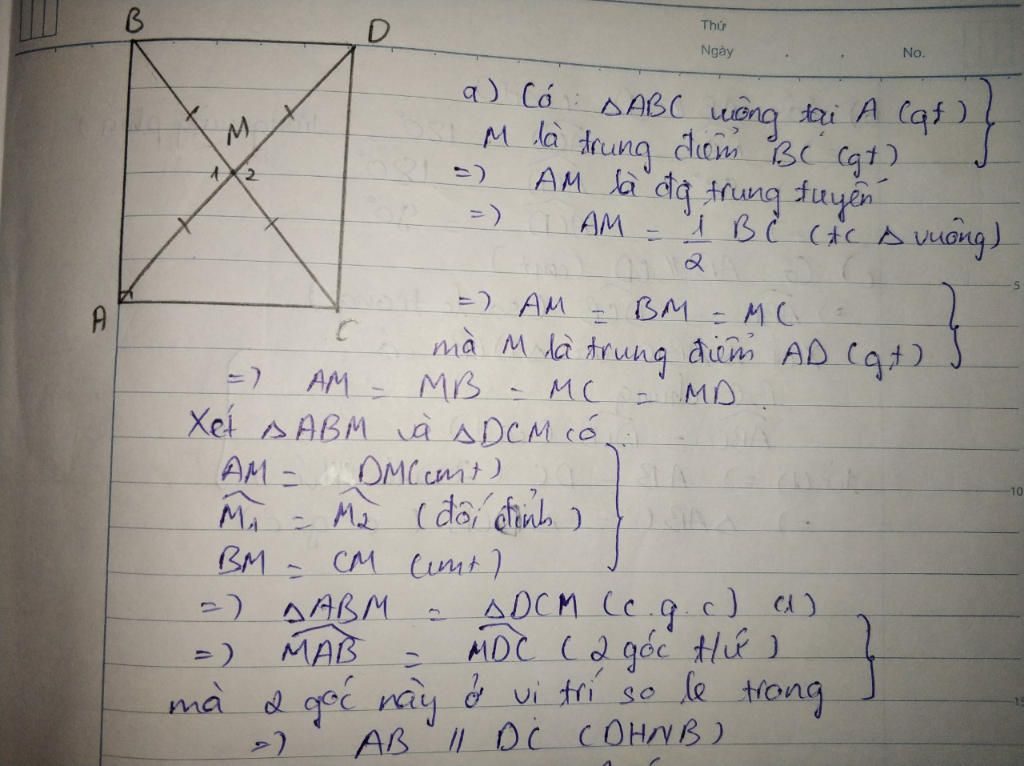 Thứ
Ngày . . No.
B
D
M
1 2
A
C
a) Có : ΔABC vuông tại A (gt)
M là trung điểm BC (gt)
=> AM là đg trung tuyến
=> AM = 1/2 BC (tc Δ vuông)
=> AM = BM = MC
mà M là trung điểm AD (gt)
=> AM = MB = MC = MD.
Xét ΔABM và ΔDCM có :
AM = DM (cmt)
M̂1 = M̂2 (đối đỉnh)
BM = CM (cmt)
=> ΔABM = ΔDCM (c.g.c) (1)
=> M̂AB = M̂DC (2 góc t/ứ)
mà 2 góc này ở vi trí so le trong
=> AB // DC (DHNB)
5
10
15